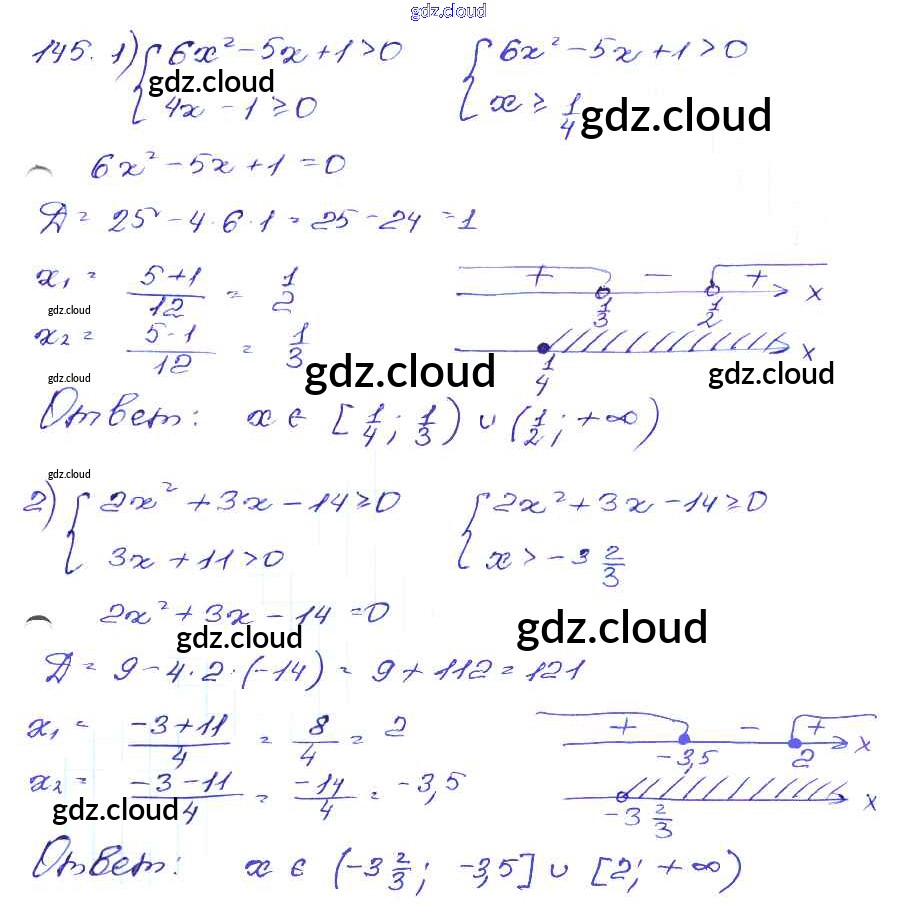 gdz.cloud
145. 1) { 6x² - 5x + 1 > 0 { 6x² - 5x + 1 > 0
gdz.cloud
4x - 1 ≥ 0 x ≥ 1/4 gdz.cloud
6x² - 5x + 1 = 0
Д = 25 - 4·6·1 = 25 - 24 = 1
x₁ = (5+1)/12 = 1/2 + - + x
gdz.cloud 1/3 1/2
x₂ = (5-1)/12 = 1/3 x
gdz.cloud gdz.cloud 1/4 gdz.cloud
Ответ: x ∈ [1/4; 1/3) ∪ (1/2; +∞)
gdz.cloud
2) { 2x² + 3x - 14 ≥ 0 { 2x² + 3x - 14 ≥ 0
3x + 11 > 0 x > -3 2/3
2x² + 3x - 14 = 0
gdz.cloud gdz.cloud
Д = 9 - 4·2·(-14) = 9 + 112 = 121
x₁ = (-3+11)/4 = 8/4 = 2 + - + x
-3,5 2
x₂ = (-3-11)/4 = -14/4 = -3,5 x
gdz.cloud -3 2/3
Ответ: x ∈ (-3 2/3; -3,5] ∪ [2; +∞)